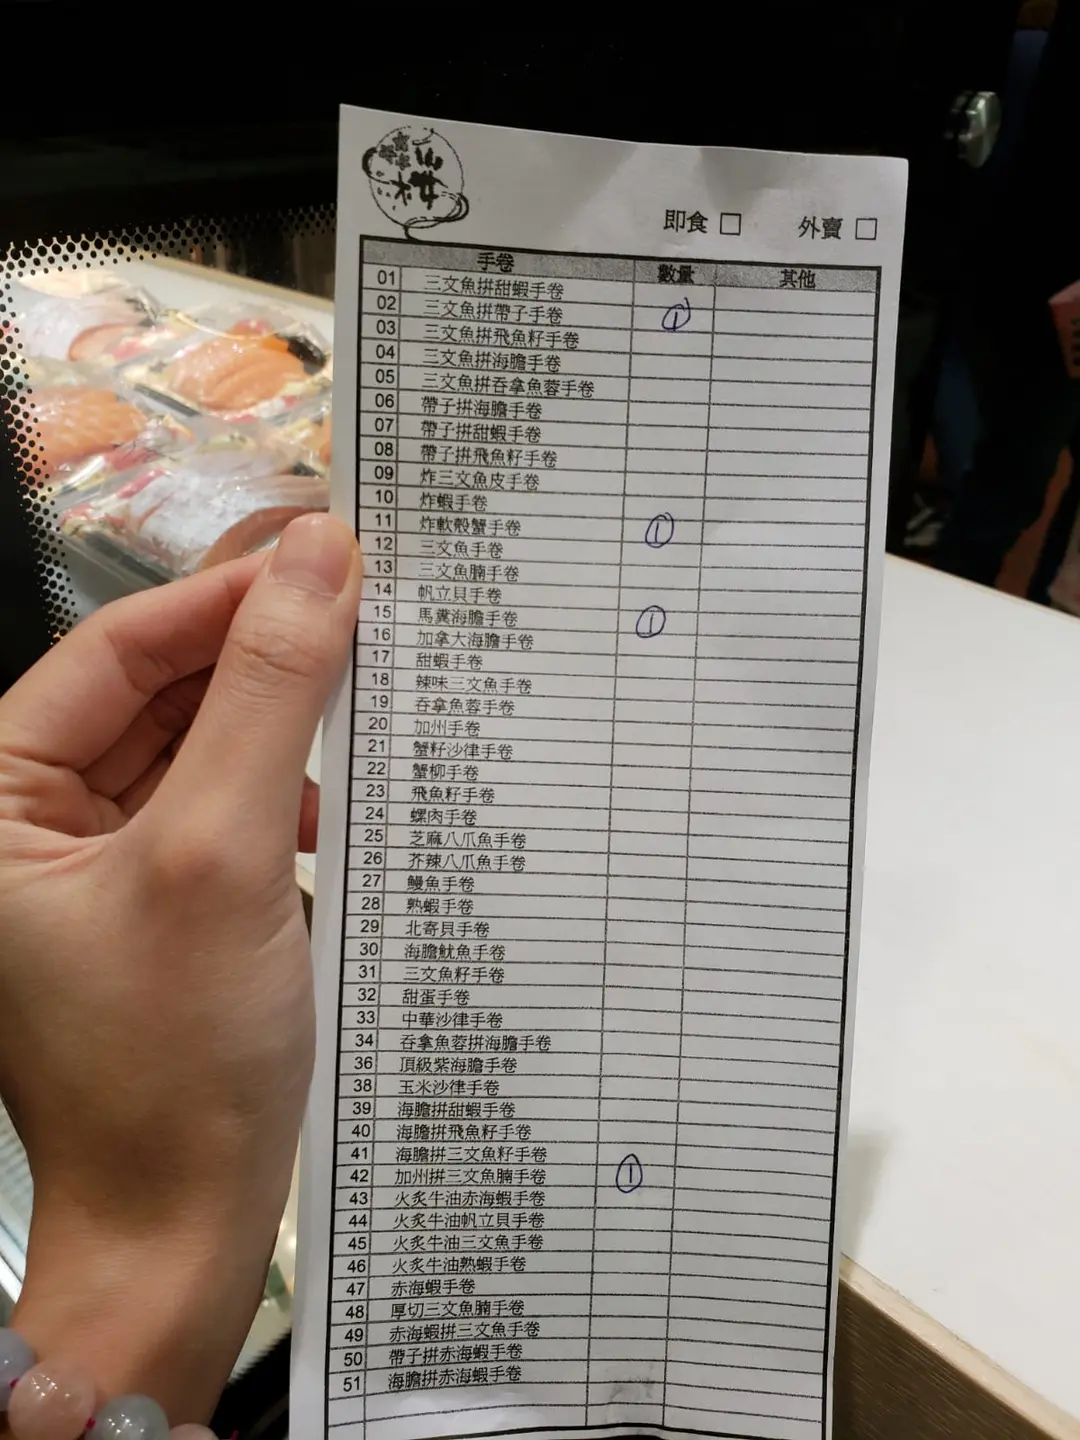 即食 □ 外賣 □
手卷 數量 其他
01 三文魚拼甜蝦手卷
02 三文魚拼帶子手卷 1
03 三文魚拼飛魚籽手卷
04 三文魚拼海膽手卷
05 三文魚拼吞拿魚蓉手卷
06 帶子拼海膽手卷
07 帶子拼甜蝦手卷
08 帶子拼飛魚籽手卷
09 炸三文魚皮手卷
10 炸蝦手卷
11 炸軟殼蟹手卷 1
12 三文魚手卷
13 三文魚腩手卷
14 帆立貝手卷
15 馬糞海膽手卷 1
16 加拿大海膽手卷
17 甜蝦手卷
18 辣味三文魚手卷
19 吞拿魚蓉手卷
20 加州手卷
21 蟹籽沙律手卷
22 蟹柳手卷
23 飛魚籽手卷
24 螺肉手卷
25 芝麻八爪魚手卷
26 芥辣八爪魚手卷
27 鰻魚手卷
28 熟蝦手卷
29 北寄貝手卷
30 海膽魷魚手卷
31 三文魚籽手卷
32 甜蛋手卷
33 中華沙律手卷
34 吞拿魚蓉拼海膽手卷
36 頂級紫海膽手卷
38 玉米沙律手卷
39 海膽拼甜蝦手卷
40 海膽拼飛魚籽手卷
41 海膽拼三文魚籽手卷
42 加州拼三文魚腩手卷 1
43 火炙牛油赤海蝦手卷
44 火炙牛油帆立貝手卷
45 火炙牛油三文魚手卷
46 火炙牛油熟蝦手卷
47 赤海蝦手卷
48 厚切三文魚腩手卷
49 赤海蝦拼三文魚手卷
50 帶子拼赤海蝦手卷
51 海膽拼赤海蝦手卷